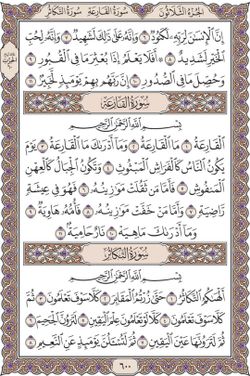 الجزء الثلاثون سورة القارعة سورة التكاثر
إِنَّ ٱلْإِنسَٰنَ لِرَبِّهِۦ لَكَنُودٌ ٦ وَإِنَّهُۥ عَلَىٰ ذَٰلِكَ لَشَهِيدٌ ٧ وَإِنَّهُۥ لِحُبِّ
ٱلْخَيْرِ لَشَدِيدٌ ٨ ۞ أَفَلَا يَعْلَمُ إِذَا بُعْثِرَ مَا فِى ٱلْقُبُورِ ٩
وَحُصِّلَ مَا فِى ٱلصُّدُورِ ١٠ إِنَّ رَبَّهُم بِهِمْ يَوْمَئِذٍ لَّخَبِيرٌۢ ١١
سورة القارعة
بِسْمِ ٱللَّهِ ٱلرَّحْمَٰنِ ٱلرَّحِيمِ
ٱلْقَارِعَةُ ١ مَا ٱلْقَارِعَةُ ٢ وَمَآ أَدْرَىٰكَ مَا ٱلْقَارِعَةُ ٣
يَوْمَ يَكُونُ ٱلنَّاسُ كَٱلْفَرَاشِ ٱلْمَبْثُوثِ ٤ وَتَكُونُ ٱلْجِبَالُ كَٱلْعِهْنِ
ٱلْمَنفُوشِ ٥ فَأَمَّا مَن ثَقُلَتْ مَوَٰزِينُهُۥ ٦ فَهُوَ فِى عِيشَةٍ
رَّاضِيَةٍ ٧ وَأَمَّا مَنْ خَفَّتْ مَوَٰزِينُهُۥ ٨ فَأُمُّهُۥ هَاوِيَةٌ ٩
وَمَآ أَدْرَىٰكَ مَا هِيَهْ ١٠ نَارٌ حَامِيَةٌۢ ١١
سورة التكاثر
بِسْمِ ٱللَّهِ ٱلرَّحْمَٰنِ ٱلرَّحِيمِ
أَلْهَىٰكُمُ ٱلتَّكَاثُرُ ١ حَتَّىٰ زُرْتُمُ ٱلْمَقَابِرَ ٢ كَلَّا سَوْفَ تَعْلَمُونَ ٣
ثُمَّ كَلَّا سَوْفَ تَعْلَمُونَ ٤ كَلَّا لَوْ تَعْلَمُونَ عِلْمَ ٱلْيَقِينِ ٥ لَتَرَوُنَّ ٱلْجَحِيمَ ٦
ثُمَّ لَتَرَوُنَّهَا عَيْنَ ٱلْيَقِينِ ٧ ثُمَّ لَتُسْـَٔلُنَّ يَوْمَئِذٍ عَنِ ٱلنَّعِيمِ ٨
٦٠٠